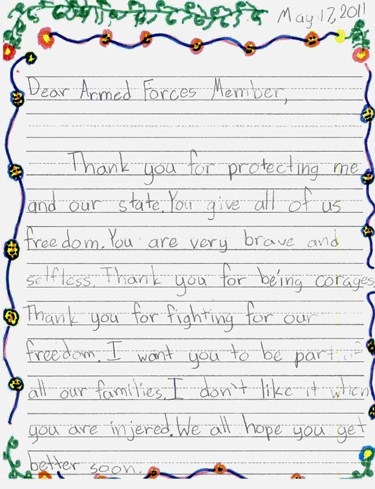 May 17, 2011
Dear Armed Forces Member,
Thank you for protecting me
and our state. You give all of us
freedom. You are very brave and
selfless. Thank you for being corages
Thank you for fighting for our
freedom. I want you to be part of
all our families. I don't like it when
you are injered. We all hope you get
better soon.